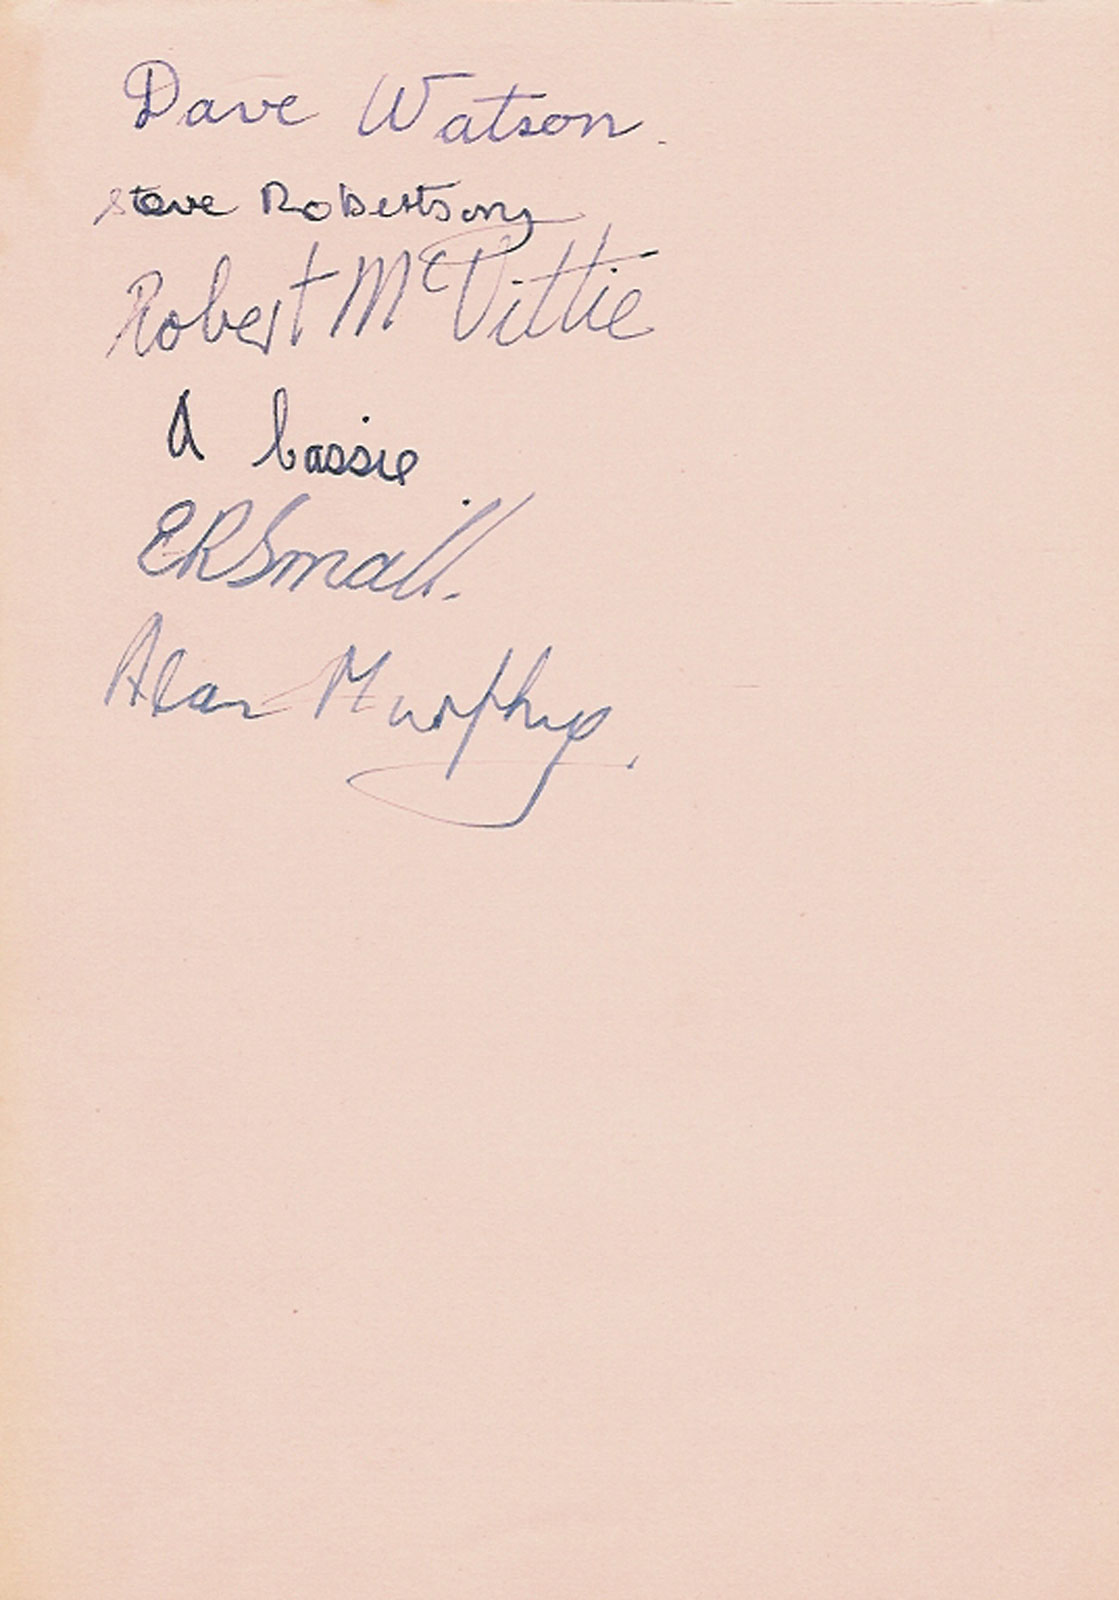 Dave Watson.
Steve Robertson
Robert McVittie
A bassie
ERSmall.
Alan Murphy.